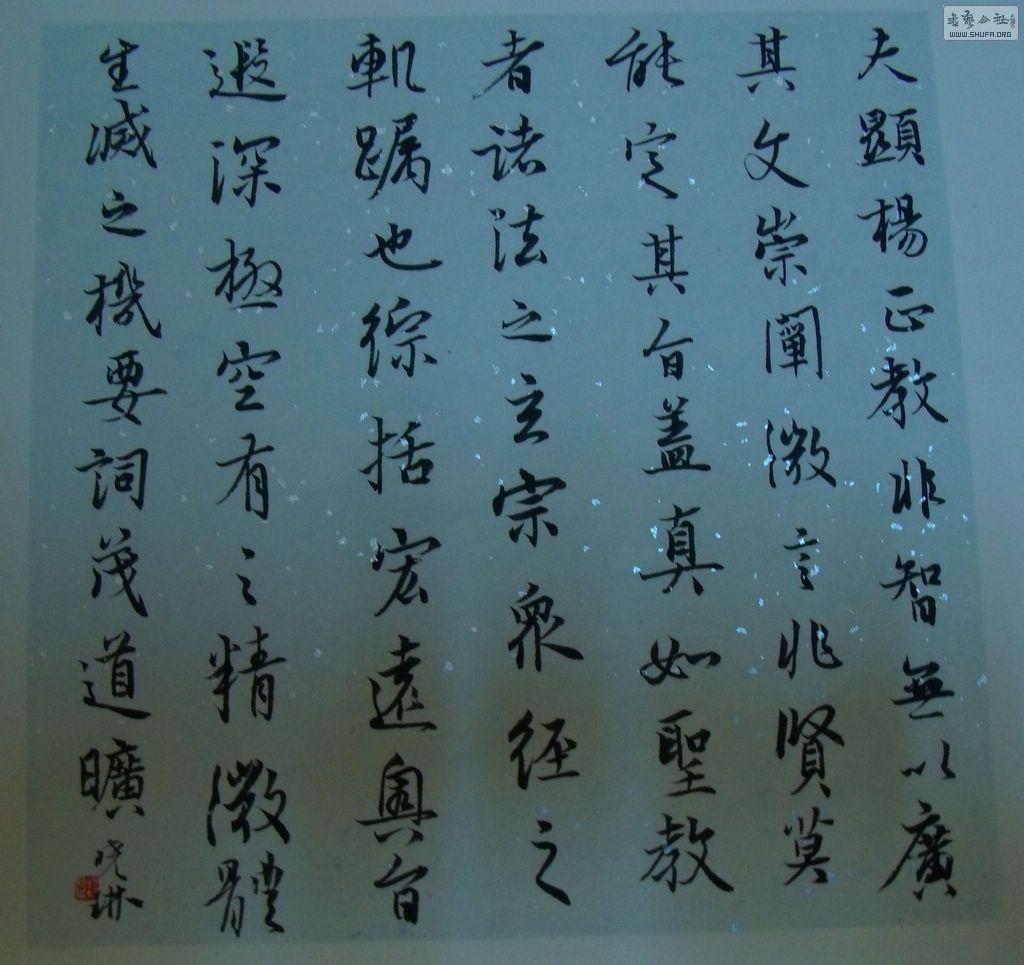 夫顯楊正教非智無以廣
其文崇闡微言非賢莫
能定其旨盖真如聖教
者諸法之玄宗衆経之
軌躅也綜括宏遠奧旨
遐深極空有之精微體
生滅之機要詞茂道曠
晓琳
書藝公社
WWW.SHUFA.ORG